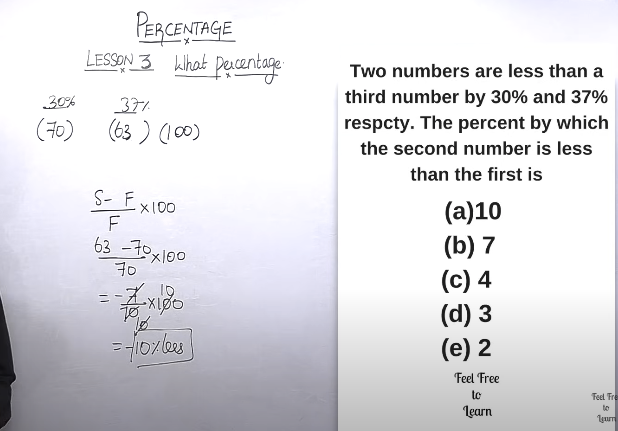 PERCENTAGE
LESSON 3 What percentage
30% 37%
(70) (63) (100)
S- F
F
×100
63 -70
70
×100
= -7
70
×100
10
10
= -10% less
Two numbers are less than a
third number by 30% and 37%
respcty. The percent by which
the second number is less
than the first is
(a)10
(b) 7
(c) 4
(d) 3
(e) 2
Feel Free
to
Learn
Feel Fre
to
Learn